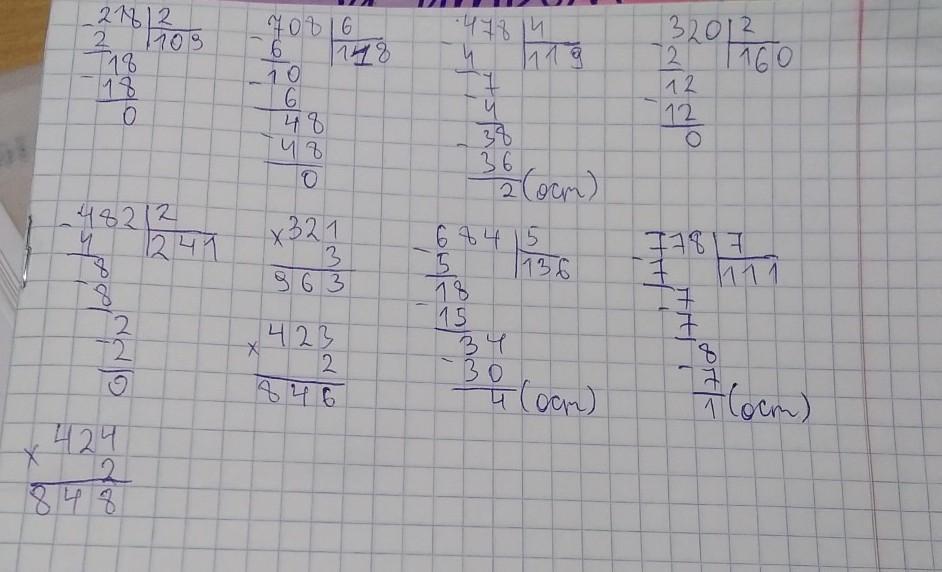 218 2
- 2 109
18
- 18
0
708 6
- 6 118
10
- 6
48
- 48
0
478 4
- 4 119
7
- 4
38
- 36
2 (ост)
320 2
- 2 160
12
- 12
0
482 2
- 4 241
8
- 8
2
- 2
0
× 321
3
963
× 423
2
846
684 5
- 5 136
18
- 15
34
- 30
4 (ост)
778 7
- 7 111
7
- 7
8
- 7
1 (ост)
× 424
2
848